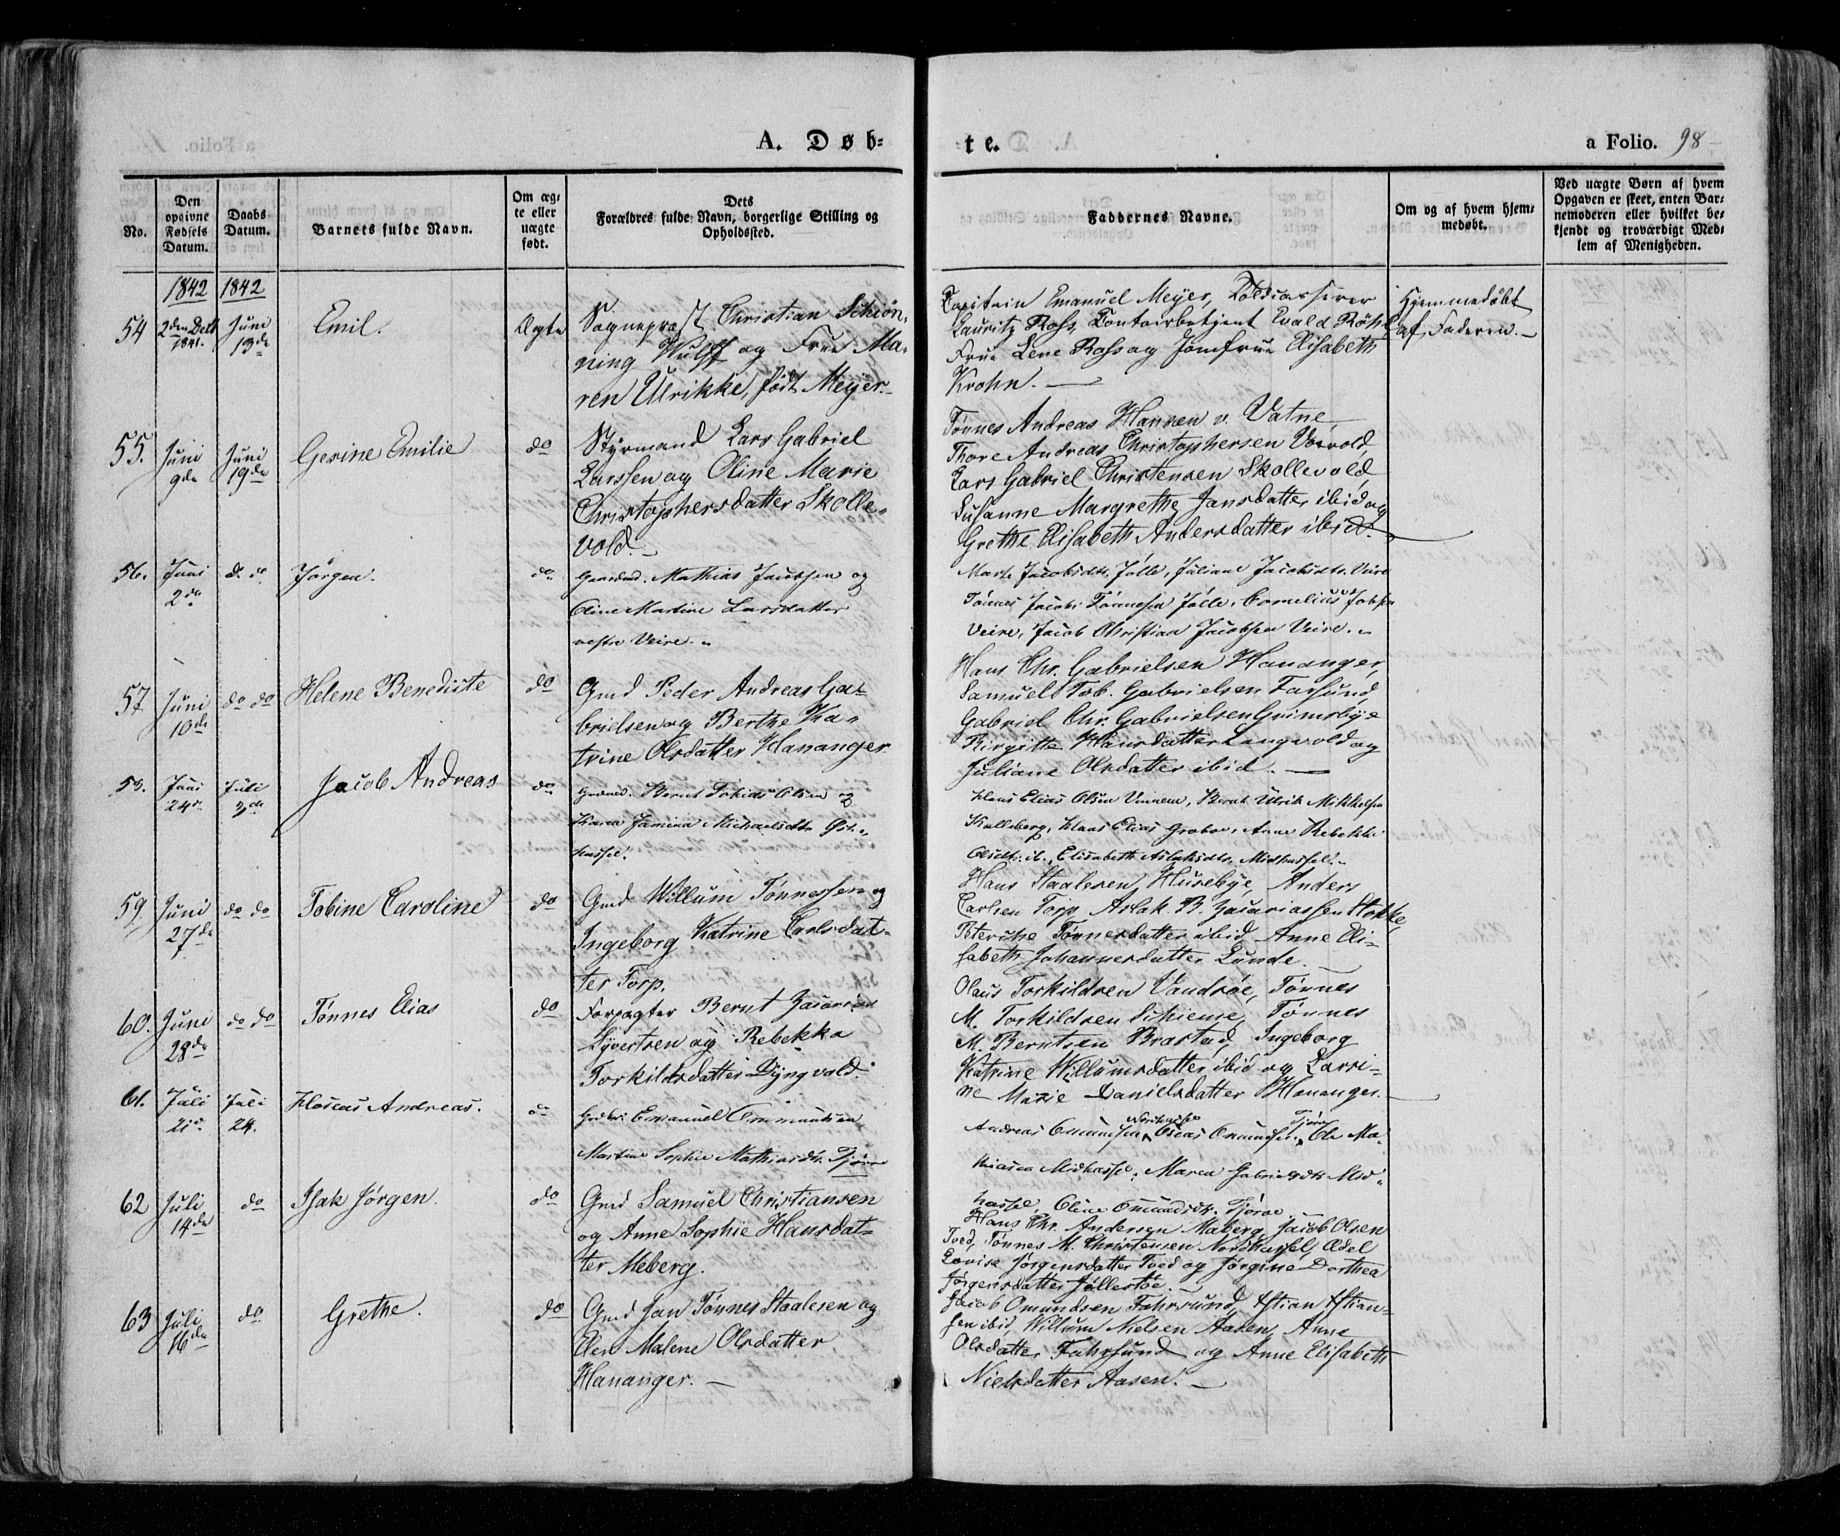 A. Døb-
te.
a Folio. 98
No.
Den opgivne Fødsels Datum.
Daabs Datum.
Barnets fulde Navn.
Om ægte eller uægte født.
Dets
Forældres fulde Navn, borgerlige Stilling og
Opholdssted.
Faddernes Navne.
Om og af hvem hjem-
medøbt.
Ved uægte Børn af hvem
Opgaven er skeet, enten Bar-
nemoderen eller hvilket be-
kjendt og troværdigt Med-
lem af Menigheden.
1842 1842
54 2den Decb 1841. Juni 13de Emil. Ægte
Sognepræst Christian Schiøn,
ning Wulff og Frue Ma-
ren Ulrikke, født Meyer.
Capitain Emanuel Meyer, Toldcasserer
Lauritz Ross, Contoirbetjent Evald Røhe
Frue Lene Ross og Jomfrue Elisabeth
Krohn. —
Hjemmedøbt
af Faderen. —
55. Juni 9de Juni 19de Gerine Emilie do
Styrmand Lars Gabriel
Larssen og Oline Marie
Christophersdatter Skolle-
vold. —
Tønnes Andreas Hansen v. Vatne
Thore Andreas Christophersen Vorvold,
Lars Gabriel Christensen Skollevold,
Susanne Margrethe Jansdatter ibid og
Grethe Elisabeth Andersdatter ibid.
56. Juni 2de d. do Jørgen. do
Gaardmd. Mathias Jacobsen og
Oline Martine Larsdatter
vestre Veire.
Marte Jacobsdtr. Jølle, Juliane Jacobsdtr. Veire
Tønnes Jacob Tønnesen Jølle, Cornelius Jobsen
Veire, Jacob Christian Jacobsen Veire.
57 Juni 10de do do Helene Benedicte do
Gmd Peder Andreas Ga-
brielsen og Berthe Ka-
trine Olsdatter Hananger
Hans Chr. Gabrielsen Hananger,
Samuel Tob. Gabrielsen Farsund
Gabriel Chr. Gabrielsen Grimsbye
Birgitte Hansdatter Langvold og
Juliane Olsdatter ibid. —
58. Juni 24de Juli 3de Jacob Andreas do
Gaardmd. Bernt Tobias Olsen og
Karen Jamina Michaelsdtr. Øst-
hassel.
Hans Elias Olsen Vinnem, Bernt Ulrik Mikkelsen
Kalleberg, Hans Elias Grobov, Anne Rebekke
Olsdt. ib., Elisabeth Aslaksdtr. Midhassel.
59 Juni 27de do do Tobine Caroline do
Gmd Willum Tønnessen og
Ingeborg Katrine Carlsdat-
ter Torp.
Hans Staalesen Husebye, Anders
Carlsen Torp, Aslak B. Zacariassen Stokke,
Peterike Tønnesdatter ibid, Anne Eli-
sabeth Johannesdatter Lunde.
60. Juni 28de do do Tønnes Elias do
Forpagter Bernt Zacarias
Syvertsen og Rebekka
Torkildsdatter Dyngvold.
Olaus Torkildsen Vandsøe, Tønnes
M. Torkildsen Schieme, Tønnes
M. Berntsen Brastad, Ingeborg
Katrine Willumsdatter ibid og Larri-
ne Marie Danielsdatter Hananger.
61. Juli 21de Juli 24. Hoseas Andreas. do
Gaardbr. Emanuel Ommundsen
Martine Sophie Mathiasdtr. Tjørve
Andreas Omundsen Nordhassel, Oseas Omundsen Tjørve, Ole Ma-
thiasen Midhassel, Maren Gabrielsdtr. Mid-
hassel, Oline Omundsdtr. Tjørve.
62 Juli 14de do Isak Jørgen. do
Gmd Samuel Christiansen
og Anne Sophie Hansdat-
ter Meberg.
Hans Chr. Andersen Maberg, Jacob Olsen
Tved, Tønnes M. Christensen Nordhassel, Ædel
Lovise Jørgensdatter Tved og Jørgine Dorthea
Jørgensdatter Jøllestøe. —
63 Juli 16de do Grethe. do
Gmd Jan Tønnes Staalesen og
Elen Malene Olsdatter
Hananger. —
Jacob Omundsen Fahrsund, Astian Astian-
sen ibid, Willum Nielsen Aasen, Anne
Olsdatter Fahrsund og Anne Elisabeth
Nielsdatter Aasen. —